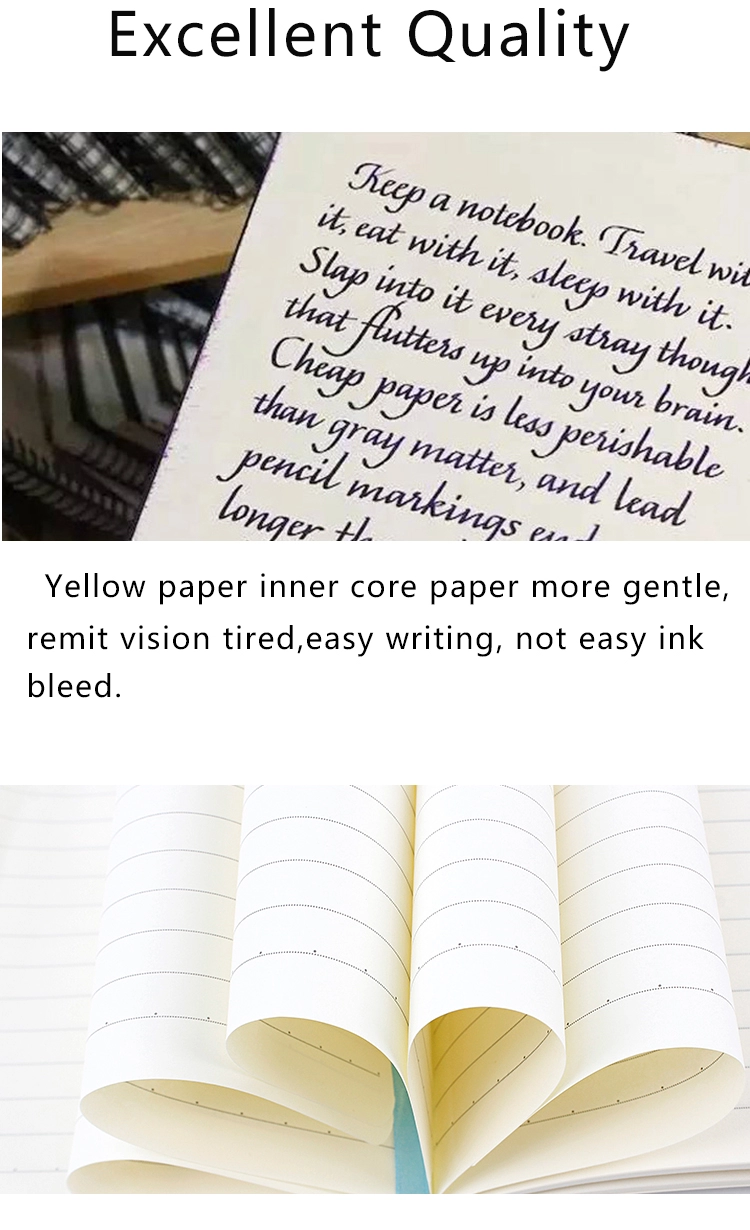 Excellent Quality
Keep a notebook. Travel wit
it, eat with it, sleep with it.
Slap into it every stray though
that flutters up into your brain.
Cheap paper is less perishable
than gray matter, and lead
pencil markings end
longer th
Yellow paper inner core paper more gentle,
remit vision tired,easy writing, not easy ink
bleed.